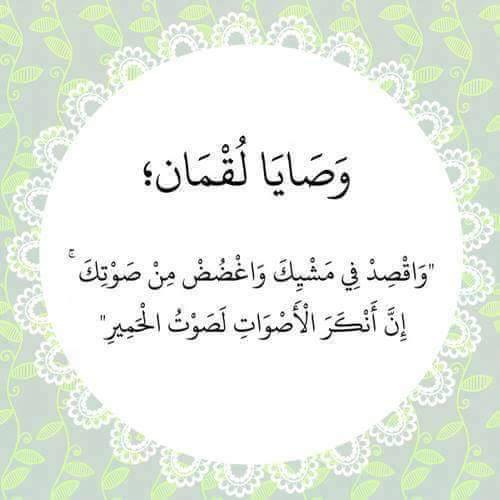 وَصَايَا لُقْمَان؛
"وَاقْصِدْ فِي مَشْيِكَ وَاغْضُضْ مِنْ صَوْتِكَ ۚ
إِنَّ أَنْكَرَ الْأَصْوَاتِ لَصَوْتُ الْحَمِيرِ"